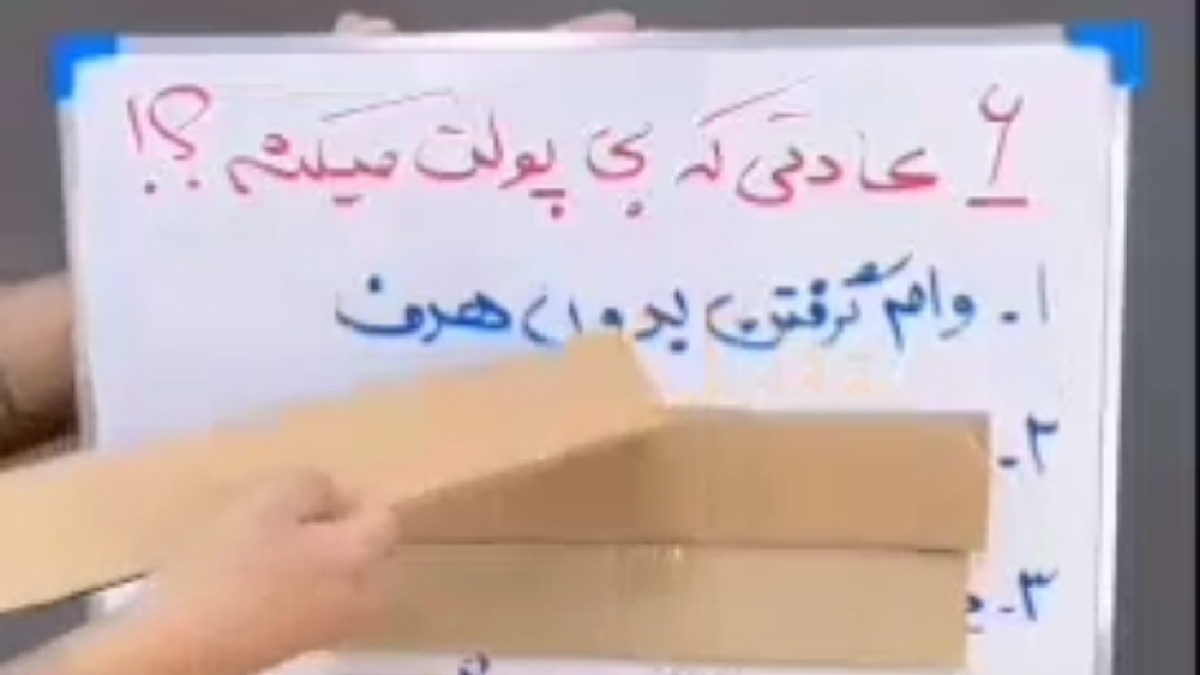 ۶ عادتی که بی پولت میکنه ؟!
۱. وام گرفتن بدون هدف
۲.
۳.